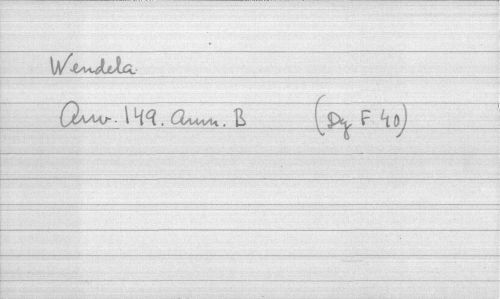 Wendela.
Anv. 149. Anm. B (Dy F 40)